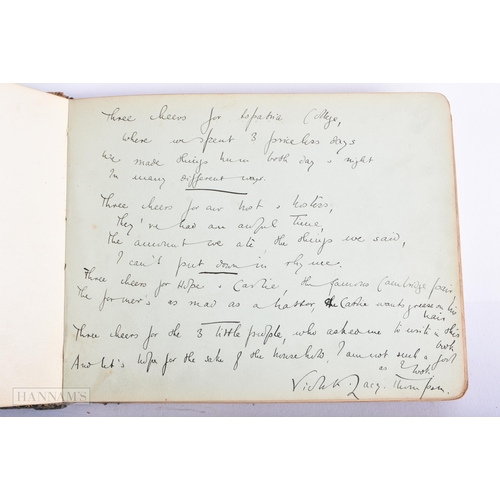 Three cheers for Aspatria College,
where we spent 3 priceless days
We made things hum both day & night
In many different ways.
Three cheers for our host & hostess;
They've had an awful time,
The amount we ate, the things we said,
I can't put down in rhyme.
Three cheers for Hope & Castie, the famous Cambridge pair
The former's as mad as a hatter, the Castie wants grease on his
hair
Three cheers for the 3 little people, who asked me to write in this
book
And let's hope for the sake of the households, I am not such a fool
as I look.
Thompson.
HANNAM'S